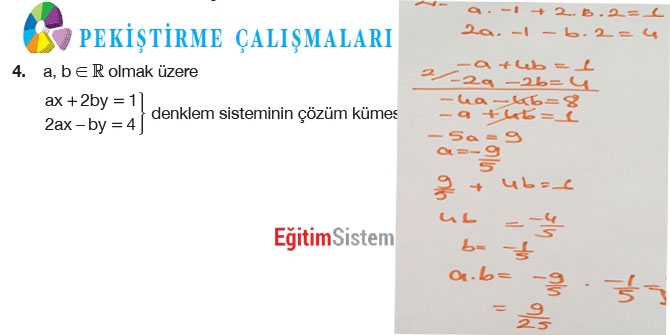 PEKİŞTİRME ÇALIŞMALARI
4. a, b ∈ ℝ olmak üzere
ax + 2by = 1
2ax – by = 4
denklem sisteminin çözüm kümes
EğitimSistem
a. -1 + 2.b.2 = 1
2a. -1 - b.2 = 4
-a + 4b = 1
2/ -2a - 2b = 4
-4a - 4b = 8
-a + 4b = 1
-5a = 9
a = -9/5
9/5 + 4b = 1
4b = -4/5
b = -1/5
a.b = -9/5 . -1/5 =
= 9/25